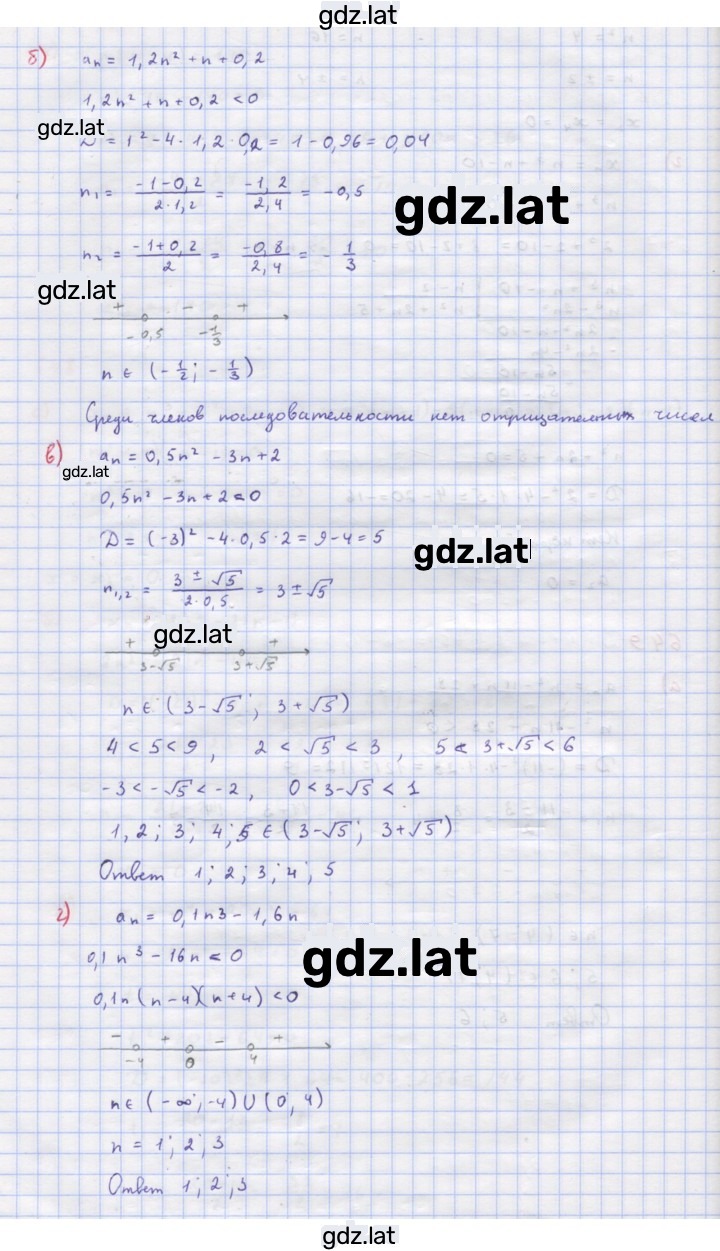 gdz.lat
б) aₙ = 1,2n² + n + 0,2
1,2n² + n + 0,2 < 0
gdz.lat
D = 1² - 4 · 1,2 · 0,2 = 1 - 0,96 = 0,04
n₁ = (-1-0,2)/(2·1,2) = (-1,2)/(2,4) = -0,5
gdz.lat
n₂ = (-1+0,2)/2 = (-0,8)/(2,4) = -1/3
gdz.lat
+ - +
-0,5 -1/3
n ∈ (-1/2; -1/3)
Среди членов последовательности нет отрицательных чисел
в) aₙ = 0,5n² - 3n + 2
gdz.lat
0,5n² - 3n + 2 < 0
D = (-3)² - 4·0,5·2 = 9 - 4 = 5
gdz.lat
n₁,₂ = (3 ± √5)/(2·0,5) = 3 ± √5
gdz.lat
+ +
3-√5 3+√5
n ∈ (3-√5; 3+√5)
4 < 5 < 9, 2 < √5 < 3, 5 < 3+√5 < 6
-3 < -√5 < -2, 0 < 3-√5 < 1
1, 2; 3; 4; 5 ∈ (3-√5; 3+√5)
Ответ 1; 2; 3; 4; 5
г) aₙ = 0,1n3 - 1,6n
0,1n³ - 16n < 0
gdz.lat
0,1n(n-4)(n+4) < 0
- + - +
-4 0 4
n ∈ (-∞; -4) ∪ (0; 4)
n = 1; 2; 3
Ответ 1; 2; 3
gdz.lat